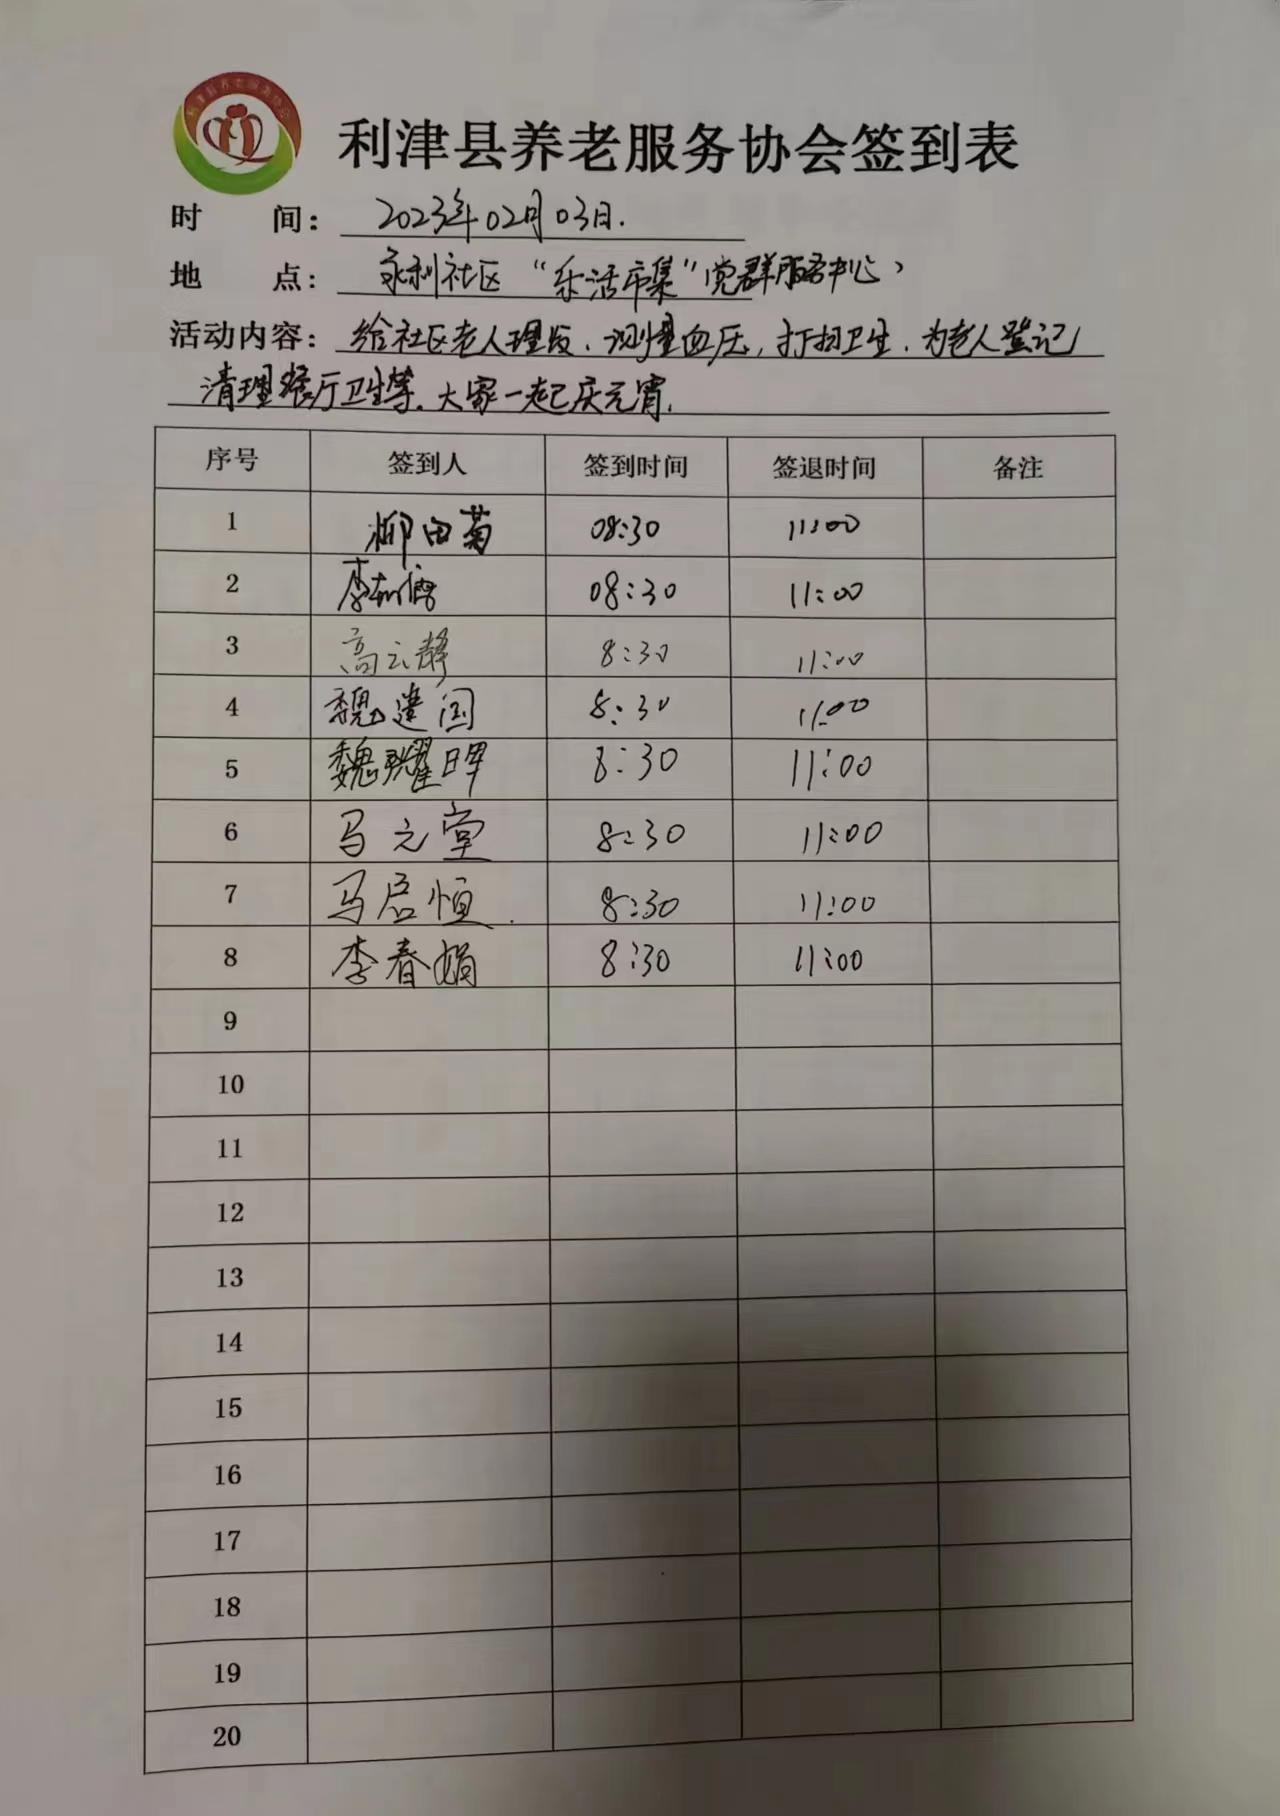 利津县养老服务协会
利津县养老服务协会签到表
时 间: 2023年02月03日.
地 点: 永利社区“乐活市集”党群服务中心
活动内容: 给社区老人理发、测量血压,打扫卫生.为老人登记
清理餐厅卫生等.大家一起庆元宵.
序号 签到人 签到时间 签退时间 备注
1 柳田菊 08:30 11:00
2 李 08:30 11:00
3 高云静 8:30 11:00
4 魏建国 8:30 11:00
5 魏耀 8:30 11:00
6 马元堂 8:30 11:00
7 马启恒 8:30 11:00
8 李春娟 8:30 11:00
9
10
11
12
13
14
15
16
17
18
19
20